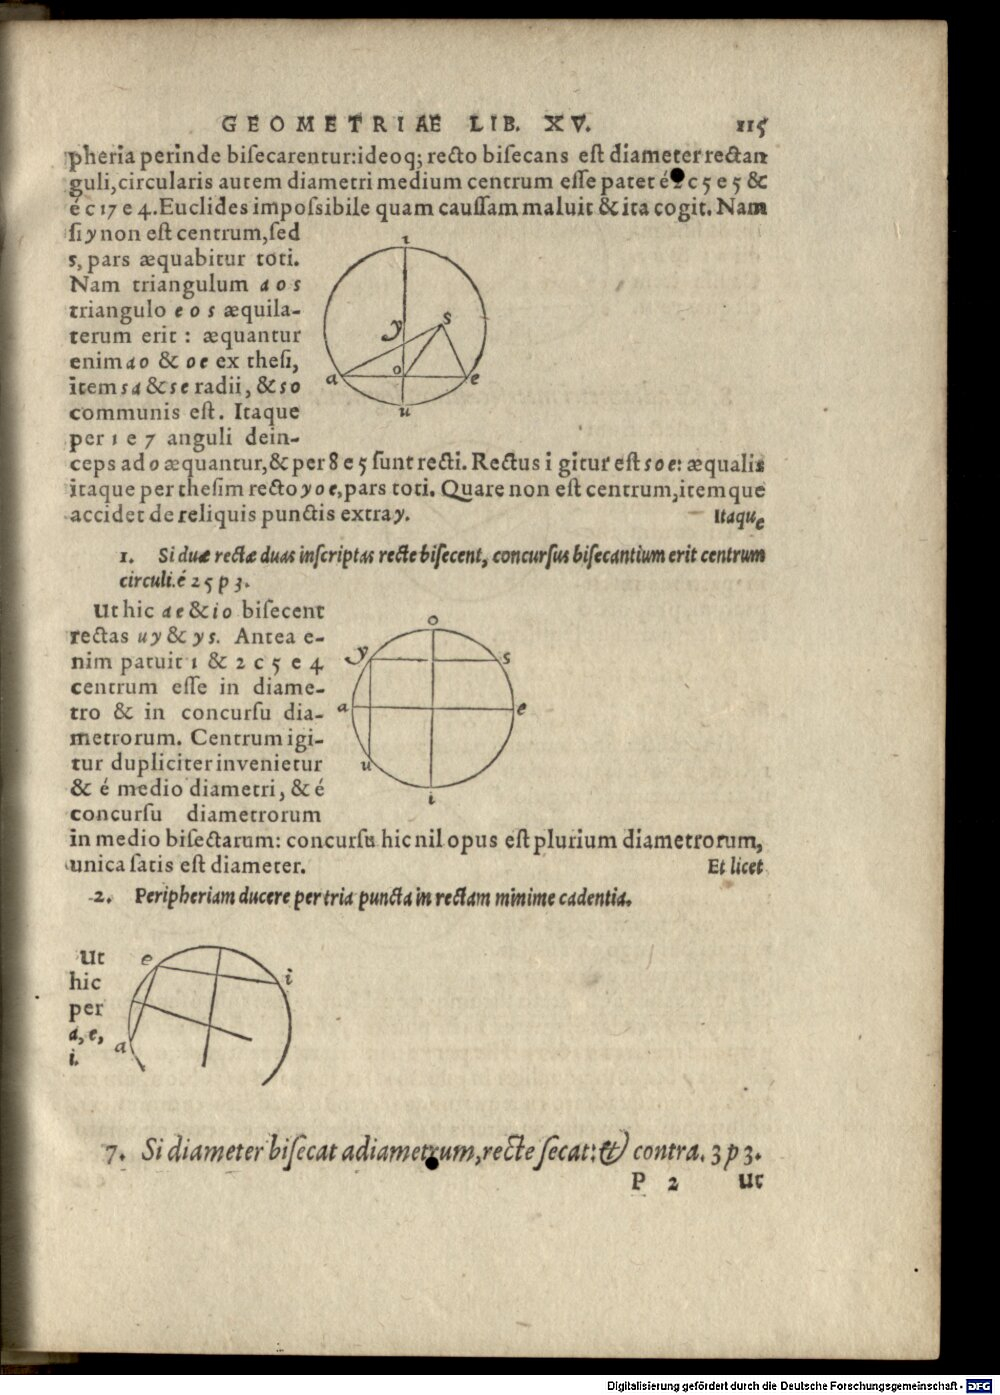 GEOMETRIAE LIB. XV. 115
pheria perinde biſecarentur:ideoq; recto biſecans eſt diameter rectan
guli,circularis autem diametri medium centrum eſſe patet é c 5 e 5 &
é c 17 e 4. Euclides impoſsibile quam cauſſam maluit & ita cogit. Nam
ſi y non eſt centrum, ſed
s, pars æquabitur toti.
Nam triangulum a o s
triangulo e o s æquila-
terum erit : æquantur
enim a o & o e ex theſi,
item s a & s e radii, & s o
communis eſt. Itaque
per 1 e 7 anguli dein-
ceps ad o æquantur,& per 8 e 5 ſunt recti. Rectus i gitur eſt s o e: æqualis
itaque per theſim recto y o e, pars toti. Quare non eſt centrum,itemque
accidet de reliquis punctis extra y. Itaque
ı
y
s
a
o
e
u
1. Si duæ rectæ duas inſcriptas recte biſecent, concurſus biſecantium erit centrum
circuli. é 25 p 3.
Ut hic a e & i o biſecent
rectas u y & y s. Antea e-
nim patuit 1 & 2 c 5 e 4
centrum eſſe in diame-
tro & in concurſu dia-
metrorum. Centrum igi-
tur dupliciter invenietur
& é medio diametri, & é
concurſu diametrorum
in medio biſectarum: concurſu hic nil opus eſt plurium diametrorum,
unica ſatis eſt diameter. Et licet
o
y
s
a
e
u
i
2. Peripheriam ducere per tria puncta in rectam minime cadentia.
Ut
hic
per
a, e,
i.
e
i
a
7. Si diameter biſecat adiametrum, recte ſecat: & contra. 3 p 3.
P 2 Ut
Digitalisierung gefördert durch die Deutsche Forschungsgemeinschaft - DFG